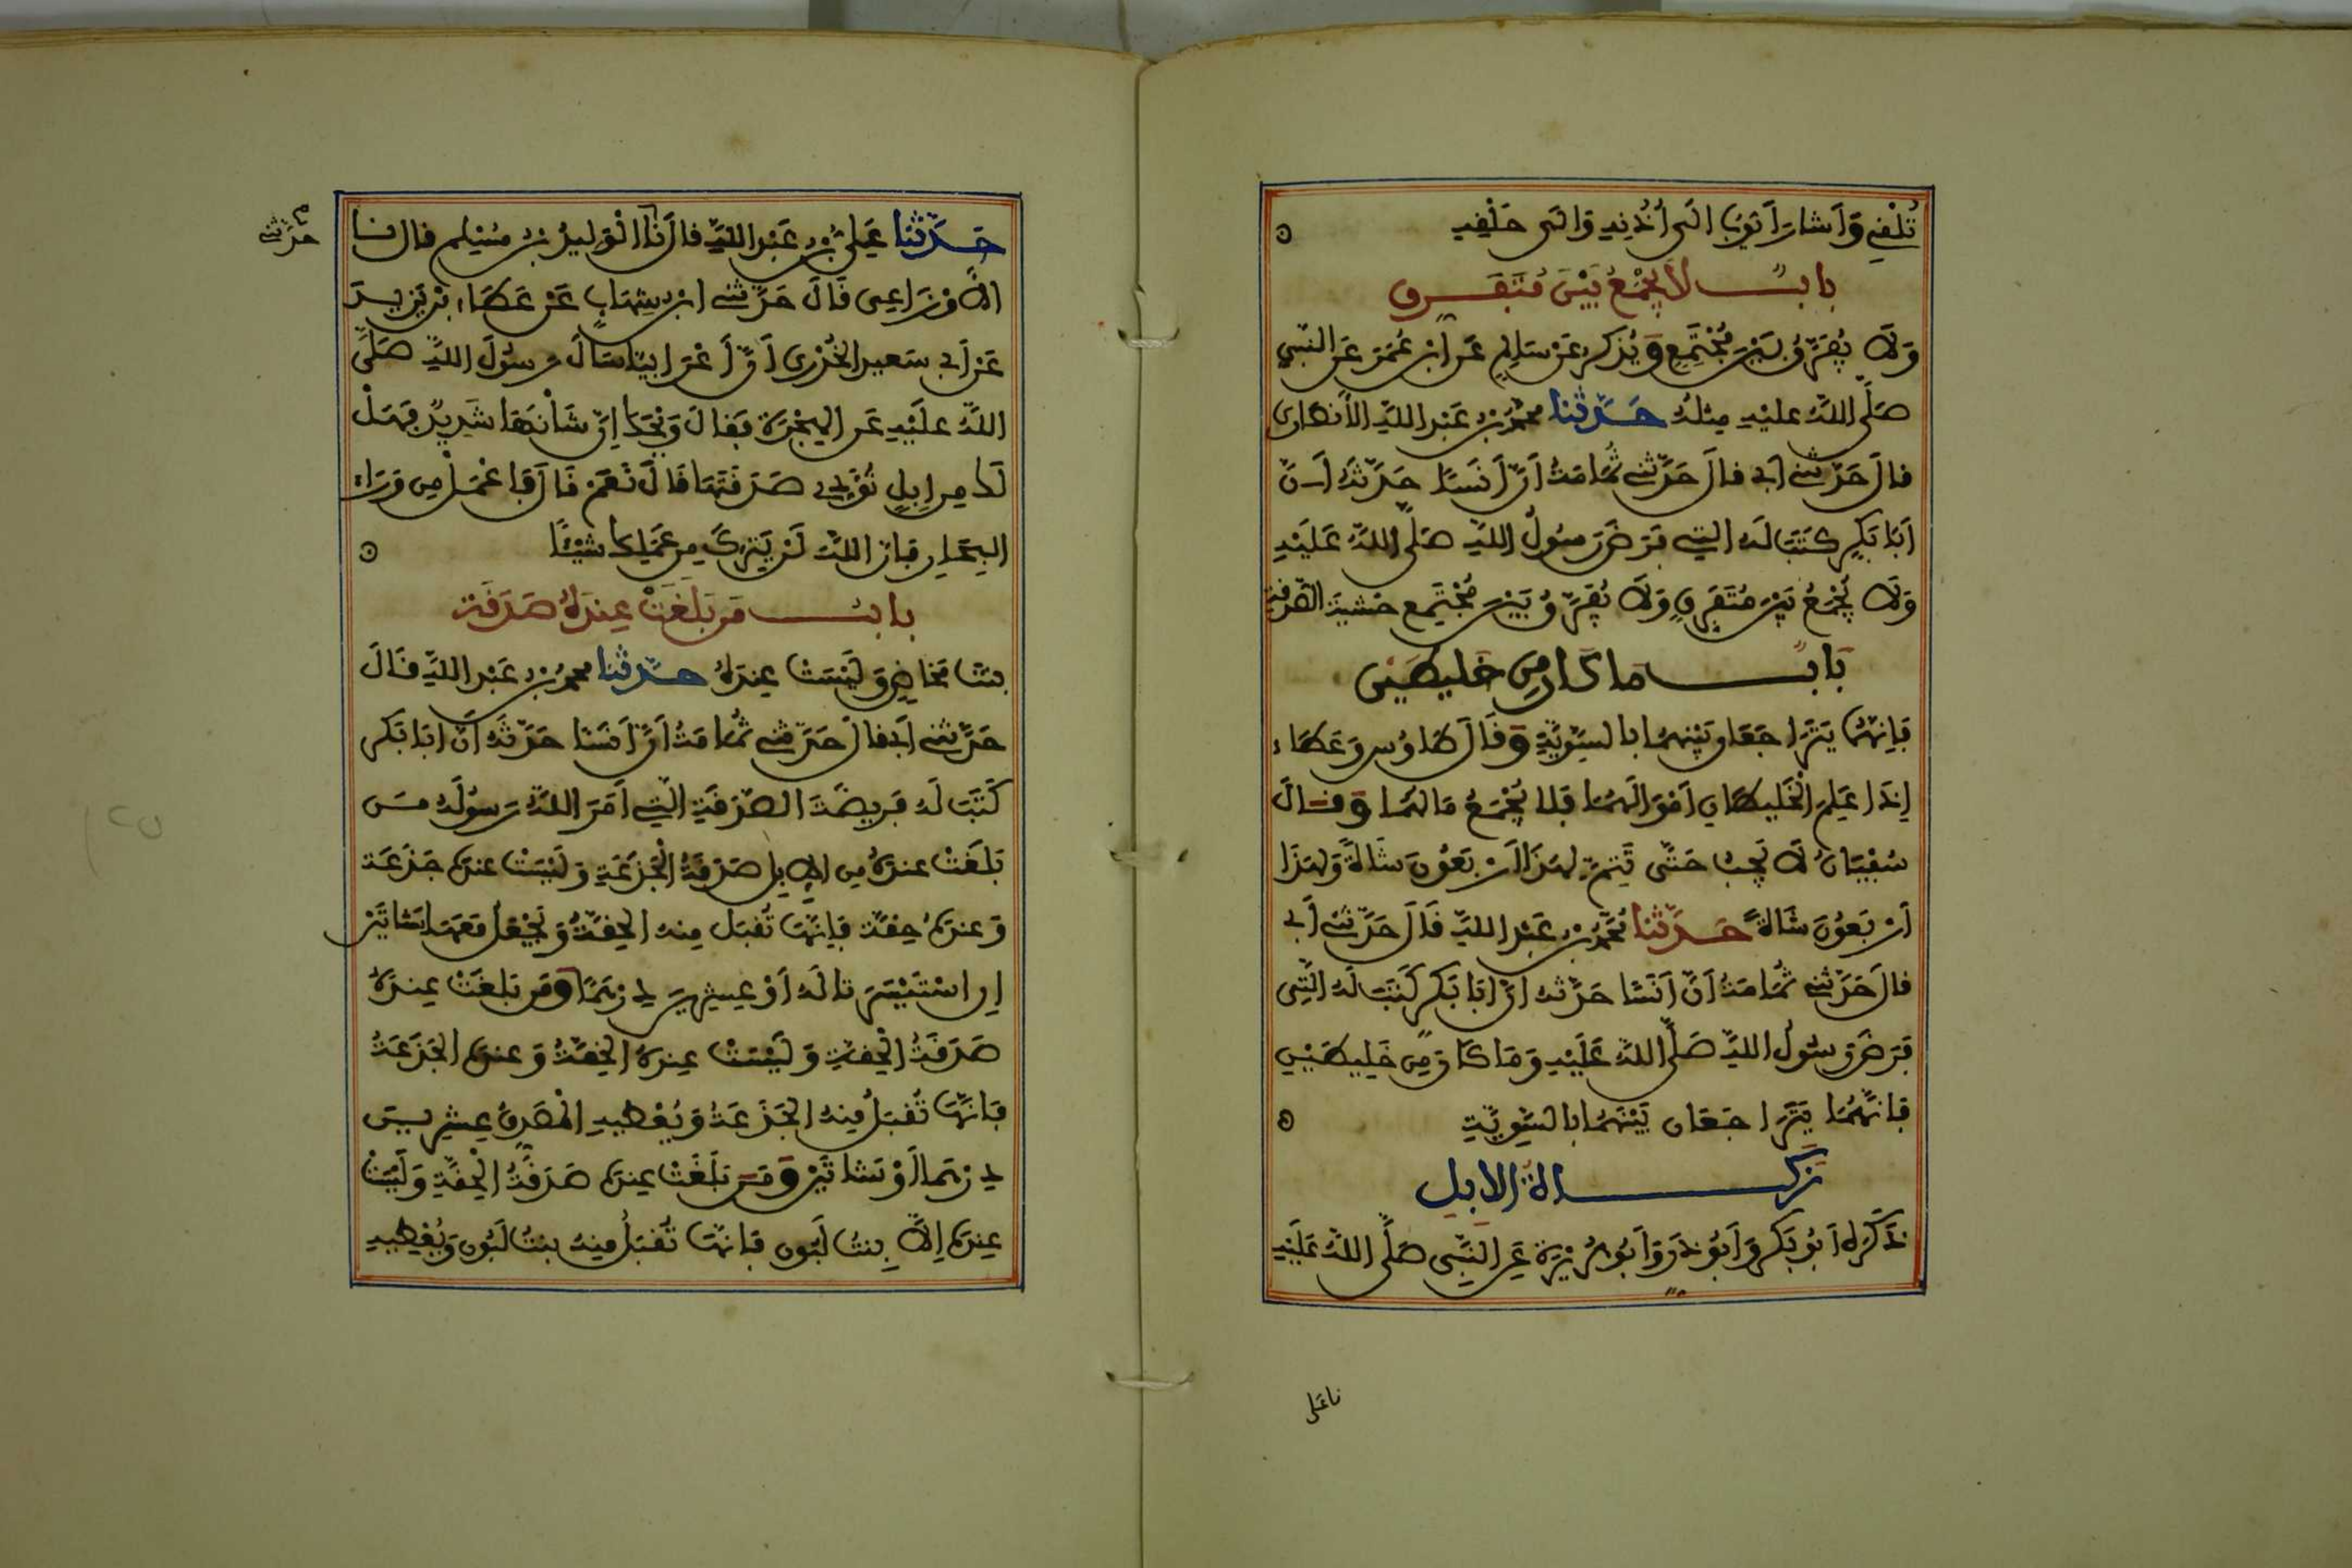 تُلْقِي وَأَشَارَ أَيُّوبُ إِلَى أُذُنِهِ وَإِلَى حَلْقِهِ
بابٌ لَا يُجْمَعُ بَيْنَ مُتَفَرِّقٍ
وَلَا يُفَرَّقُ بَيْنَ مُجْتَمِعٍ وَيُذْكَرُ عَنْ سَالِمٍ عَنِ ابْنِ عُمَرَ عَنِ النَّبِيِّ
صَلَّى اللَّهُ عَلَيْهِ مِثْلُهُ حَدَّثَنَا مُحَمَّدُ بْنُ عَبْدِ اللَّهِ الْأَنْصَارِيُّ
قَالَ حَدَّثَنِي أَبِي قَالَ حَدَّثَنِي ثُمَامَةُ أَنَّ أَنَسًا حَدَّثَهُ أَنَّ
أَبَا بَكْرٍ كَتَبَ لَهُ الَّتِي فَرَضَ رَسُولُ اللَّهِ صَلَّى اللَّهُ عَلَيْهِ
وَلَا يُجْمَعُ بَيْنَ مُتَفَرِّقٍ وَلَا يُفَرَّقُ بَيْنَ مُجْتَمِعٍ خَشْيَةَ الصَّدَقَةِ
بَابٌ مَا كَانَ مِنْ خَلِيطَيْنِ
فَإِنَّهُمَا يَتَرَاجَعَانِ بَيْنَهُمَا بِالسَّوِيَّةِ وَقَالَ طَاوُسٌ وَعَطَاءٌ
إِذَا عَلِمَ الْخَلِيطَانِ أَمْوَالَهُمَا فَلَا يُجْمَعُ مَالُهُمَا وَقَالَ
سُفْيَانُ لَا يَجِبُ حَتَّى يَتِمَّ لِهَذَا أَرْبَعُونَ شَاةً وَلِهَذَا
أَرْبَعُونَ شَاةً حَدَّثَنَا مُحَمَّدُ بْنُ عَبْدِ اللَّهِ قَالَ حَدَّثَنِي أَبِي
قَالَ حَدَّثَنِي ثُمَامَةُ أَنَّ أَنَسًا حَدَّثَهُ أَنَّ أَبَا بَكْرٍ كَتَبَ لَهُ الَّتِي
فَرَضَ رَسُولُ اللَّهِ صَلَّى اللَّهُ عَلَيْهِ وَمَا كَانَ مِنْ خَلِيطَيْنِ
فَإِنَّهُمَا يَتَرَاجَعَانِ بَيْنَهُمَا بِالسَّوِيَّةِ
زَكَاةُ الْإِبِلِ
ذَكَرَهُ أَبُو بَكْرٍ وَأَبُو ذَرٍّ وَأَبُو هُرَيْرَةَ عَنِ النَّبِيِّ صَلَّى اللَّهُ عَلَيْهِ
نا علي
حَدَّثَنَا عَلِيُّ بْنُ عَبْدِ اللَّهِ قَالَ نَا الْوَلِيدُ بْنُ مُسْلِمٍ قَالَ نَا
حدثني
الْأَوْزَاعِيُّ قَالَ حَدَّثَنِي ابْنُ شِهَابٍ عَنْ عَطَاءِ بْنِ يَزِيدَ
عَنْ أَبِي سَعِيدٍ الْخُدْرِيِّ أَنَّ أَعْرَابِيًّا سَأَلَ رَسُولَ اللَّهِ صَلَّى
اللَّهُ عَلَيْهِ عَنِ الْهِجْرَةِ فَقَالَ وَيْحَكَ إِنَّ شَأْنَهَا شَدِيدٌ فَهَلْ
لَكَ مِنْ إِبِلٍ تُؤَدِّي صَدَقَتَهَا قَالَ نَعَمْ قَالَ فَاعْمَلْ مِنْ وَرَاءِ
الْبِحَارِ فَإِنَّ اللَّهَ لَنْ يَتِرَكَ مِنْ عَمَلِكَ شَيْئًا
بَابُ مَنْ بَلَغَتْ عِنْدَهُ صَدَقَةُ
بِنْتِ مَخَاضٍ وَلَيْسَتْ عِنْدَهُ حَدَّثَنَا مُحَمَّدُ بْنُ عَبْدِ اللَّهِ قَالَ
حَدَّثَنِي أَبِي قَالَ حَدَّثَنِي ثُمَامَةُ أَنَّ أَنَسًا حَدَّثَهُ أَنَّ أَبَا بَكْرٍ
كَتَبَ لَهُ فَرِيضَةَ الصَّدَقَةِ الَّتِي أَمَرَ اللَّهُ رَسُولَهُ مَنْ
بَلَغَتْ عِنْدَهُ مِنَ الْإِبِلِ صَدَقَةُ الْجَذَعَةِ وَلَيْسَتْ عِنْدَهُ جَذَعَةٌ
وَعِنْدَهُ حِقَّةٌ فَإِنَّهَا تُقْبَلُ مِنْهُ الْحِقَّةُ وَيَجْعَلُ مَعَهَا شَاتَيْنِ
إِنِ اسْتَيْسَرَتَا لَهُ أَوْ عِشْرِينَ دِرْهَمًا وَمَنْ بَلَغَتْ عِنْدَهُ
صَدَقَةُ الْحِقَّةِ وَلَيْسَتْ عِنْدَهُ الْحِقَّةُ وَعِنْدَهُ الْجَذَعَةُ
فَإِنَّهَا تُقْبَلُ مِنْهُ الْجَذَعَةُ وَيُعْطِيهِ الْمُصَدِّقُ عِشْرِينَ
دِرْهَمًا أَوْ شَاتَيْنِ وَمَنْ بَلَغَتْ عِنْدَهُ صَدَقَةُ الْحِقَّةِ وَلَيْسَتْ
عِنْدَهُ إِلَّا بِنْتُ لَبُونٍ فَإِنَّهَا تُقْبَلُ مِنْهُ بِنْتُ لَبُونٍ وَيُعْطِيهِ